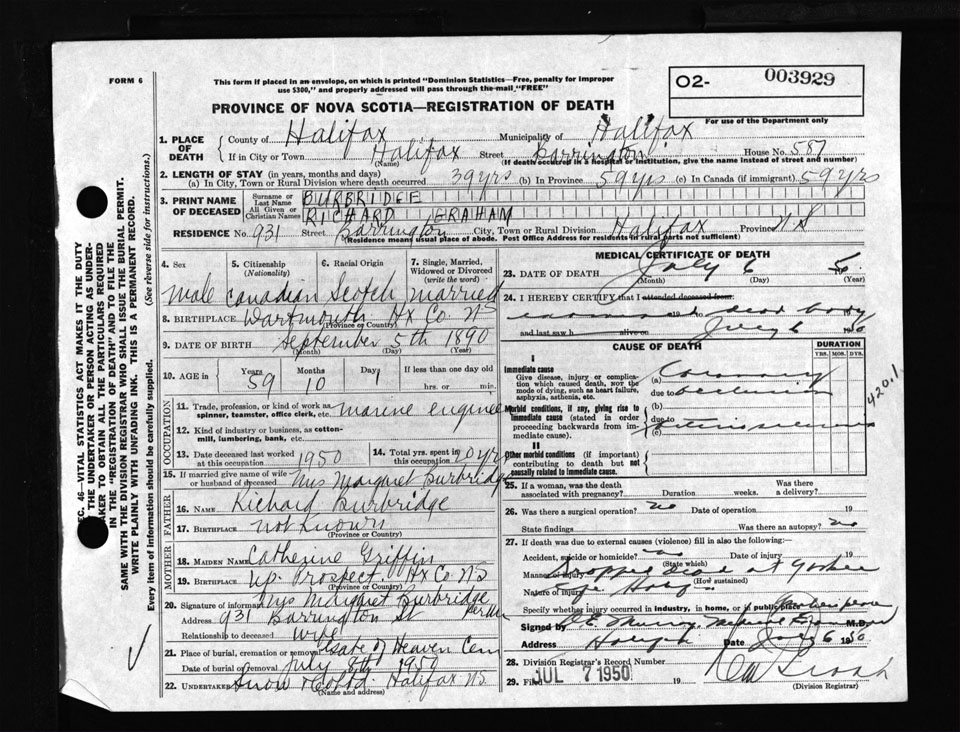 FORM 6
This form if placed in an envelope, on which is printed "Dominion Statistics—Free, penalty for improper
use $300," and properly addressed will pass through the mail "FREE"
O2- 003929
For use of the Department only
PROVINCE OF NOVA SCOTIA—REGISTRATION OF DEATH
1. PLACE OF DEATH
County of Halifax Municipality of Halifax
If in City or Town Halifax Street Barrington House No. 587
(Name) (If death occurred in a hospital or institution, give the name instead of street and number)
2. LENGTH OF STAY (in years, months and days)
(a) In City, Town or Rural Division where death occurred 39 yrs (b) In Province 59 yrs (c) In Canada (if immigrant) 59 yrs
3. PRINT NAME OF DECEASED
Surname or Last Name BURBRIDGE
All Given or Christian Names RICHARD GRAHAM
RESIDENCE No. 931 Street Barrington City, Town or Rural Division Halifax Province N S
(Residence means usual place of abode. Post Office Address for residents in rural parts not sufficient)
4. Sex 5. Citizenship (Nationality) 6. Racial Origin 7. Single, Married, Widowed or Divorced (write the word)
Male Canadian Scotch Married
8. BIRTHPLACE Dartmouth Hx Co. NS
(Province or Country)
9. DATE OF BIRTH September 5th 1890
(Month) (Day) (Year)
10. AGE in Years 59 Months 10 Days 1 If less than one day old
hrs. or min.
OCCUPATION
11. Trade, profession, or kind of work as spinner, teamster, office clerk, etc. Marine engineer
12. Kind of industry or business, as cotton-mill, lumbering, bank, etc.
13. Date deceased last worked at this occupation 1950 14. Total yrs. spent in this occupation
15. If married give name of wife or husband of deceased Mrs Margaret Burbridge
FATHER
16. Name Richard Burbridge
17. Birthplace not known
(Province or Country)
MOTHER
18. Maiden Name Catherine Griffin
19. Birthplace Up. Prospect Hx Co NS
(Province or Country)
20. Signature of informant Mrs Margaret Burbridge
Address 931 Barrington St
Relationship to deceased wife
21. Place of burial, cremation or removal Gate of Heaven Cem
Date of burial or removal July 8th 1950
22. Undertaker Snow & Co Ltd. Halifax NS
(Name and address)
MEDICAL CERTIFICATE OF DEATH
23. DATE OF DEATH July 6
(Month) (Day) (Year)
24. I HEREBY CERTIFY that I attended deceased from:
19 to dead body
and last saw h alive on July 6
CAUSE OF DEATH
DURATION
YRS. MOS. DYS.
I
Immediate cause
Give disease, injury or complication which caused death, NOT the mode of dying, such as heart failure, asphyxia, asthenia, etc.
(a) Coronary
due to occlusion
420.1
Morbid conditions, if any, giving rise to immediate cause (stated in order proceeding backwards from immediate cause).
(b)
due to
(c)
II
Other morbid conditions (if important) contributing to death but not causally related to immediate cause.
25. If a woman, was the death associated with pregnancy? Duration weeks. Was there a delivery?
26. Was there a surgical operation? no Date of operation 19
State findings Was there an autopsy? no
27. If death was due to external causes (violence) fill in also the following:
Accident, suicide or homicide? no Date of injury 19
(State which)
Manner of injury Dropped dead at
(How sustained)
Nature of injury
Specify whether injury occurred in industry, in home, or in public place
Signed by Murray Medical Examiner M.D.
Address Date July 6 19
28. Division Registrar's Record Number
29. Filed JUL 7 1950 19
(Division Registrar)
SEC. 46—VITAL STATISTICS ACT MAKES IT THE DUTY
OF THE UNDERTAKER OR PERSON ACTING AS UNDER-
TAKER TO OBTAIN ALL THE PARTICULARS REQUIRED
IN THE "REGISTRATION OF DEATH" AND TO FILE THE
SAME WITH THE DIVISION REGISTRAR WHO SHALL ISSUE THE BURIAL PERMIT.
WRITE PLAINLY WITH UNFADING INK. THIS IS A PERMANENT RECORD.
Every item of information should be carefully supplied. (See reverse side for instructions.)